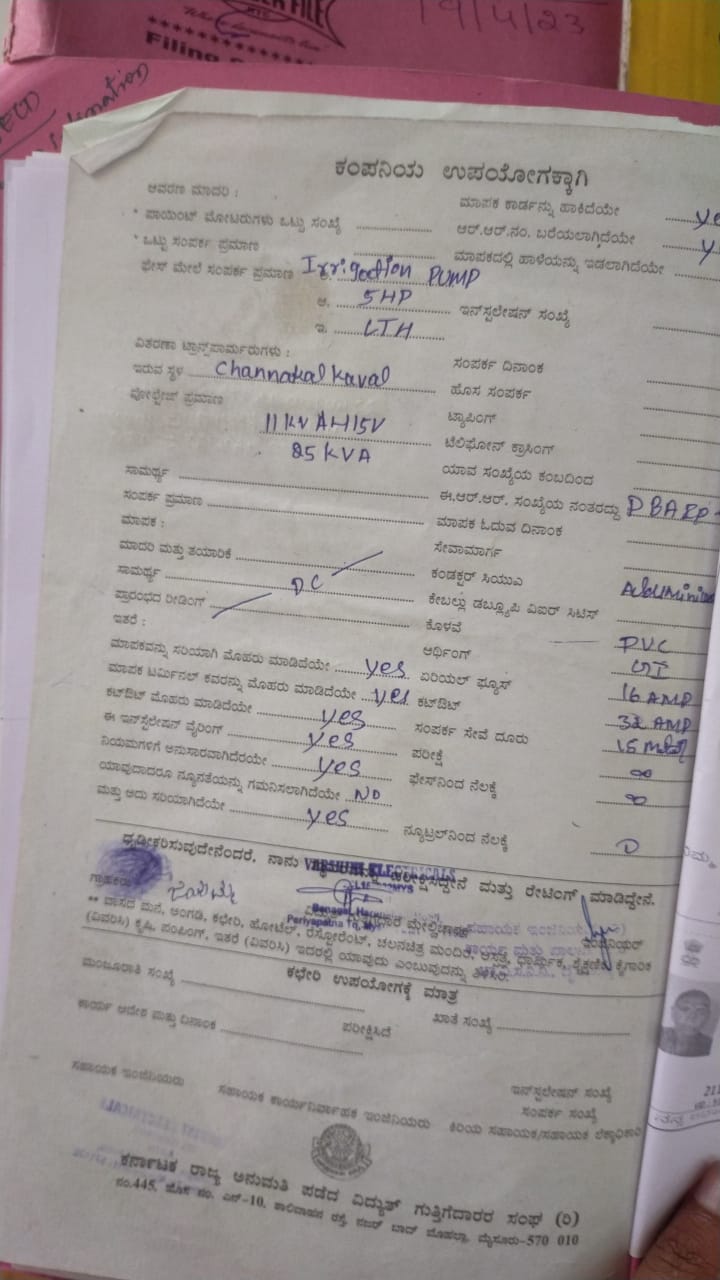 19/4/23
Filing
ಕಂಪನಿಯ ಉಪಯೋಗಕ್ಕಾಗಿ
ಆವರಣ ಮಾದರಿ :
ಮಾಪಕ ಕಾರ್ಡನ್ನು ಹಾಕಿದೆಯೇ
* ಪಾಯಿಂಟ್ ಮೋಟರುಗಳು ಒಟ್ಟು ಸಂಖ್ಯೆ
ಆರ್.ಆರ್.ನಂ. ಬರೆಯಲಾಗಿದೆಯೇ
* ಒಟ್ಟು ಸಂಪರ್ಕ ಪ್ರಮಾಣ
ಮಾಪಕದಲ್ಲಿ ಹಾಳೆಯನ್ನು ಇಡಲಾಗಿದೆಯೇ
ಫೇಸ್ ಮೇಲೆ ಸಂಪರ್ಕ ಪ್ರಮಾಣ Irrigation PUMP
ಆ. 5HP ಇನ್‌ಸ್ಟಲೇಷನ್ ಸಂಖ್ಯೆ
ಇ. LTH
ವಿತರಣಾ ಟ್ರಾನ್ಸ್‌ಫಾರ್ಮರುಗಳು :
ಸಂಪರ್ಕ ದಿನಾಂಕ
ಇರುವ ಸ್ಥಳ Channakal Kaval
ಹೊಸ ಸಂಪರ್ಕ
ವೋಲ್ಟೇಜ್ ಪ್ರಮಾಣ
ಟ್ಯಾಪಿಂಗ್
ಟೆಲಿಫೋನ್ ಕ್ರಾಸಿಂಗ್
25 KVA
ಯಾವ ಸಂಖ್ಯೆಯ ಕಂಬದಿಂದ
ಸಾಮರ್ಥ್ಯ
ಈ.ಆರ್.ಆರ್. ಸಂಖ್ಯೆಯ ನಂತರದ್ದು
ಸಂಪರ್ಕ ಪ್ರಮಾಣ
ಮಾಪಕ ಓದುವ ದಿನಾಂಕ
ಮಾಪಕ :
ಸೇವಾಮಾರ್ಗ
ಮಾದರಿ ಮತ್ತು ತಯಾರಿಕೆ
ಕಂಡಕ್ಟರ್ ಸಿಯುಎ
ಸಾಮರ್ಥ್ಯ DC
ಕೇಬಲ್ಲು ಡಬ್ಲ್ಯೂಪಿ ವಿಐರ್ ಸಿಟಿಸ್
ಪ್ರಾರಂಭದ ರೀಡಿಂಗ್
ಕೊಳವೆ PVC
ಇತರೆ :
ಅರ್ಥಿಂಗ್ GI
ಮಾಪಕವನ್ನು ಸರಿಯಾಗಿ ಮೊಹರು ಮಾಡಿದೆಯೇ yes
ಏರಿಯಲ್ ಫ್ಯೂಸ್ 16 AMP
ಮಾಪಕ ಟರ್ಮಿನಲ್ ಕವರನ್ನು ಮೊಹರು ಮಾಡಿದೆಯೇ yes
ಕಟ್‌ಔಟ್ 32 AMP
ಕಟ್‌ಔಟ್ ಮೊಹರು ಮಾಡಿದೆಯೇ yes
ಸಂಪರ್ಕ ಸೇವೆ ದೂರು
ಈ ಇನ್‌ಸ್ಟಲೇಷನ್ ವೈರಿಂಗ್ yes
ಪರೀಕ್ಷೆ ∞
ನಿಯಮಗಳಿಗೆ ಅನುಸಾರವಾಗಿದೆಯೇ yes
ಫೇಸ್‌ನಿಂದ ನೆಲಕ್ಕೆ ∞
ಯಾವುದಾದರೂ ನ್ಯೂನತೆಯನ್ನು ಗಮನಿಸಲಾಗಿದೆಯೇ NO
ಮತ್ತು ಅದು ಸರಿಯಾಗಿದೆಯೇ yes
ನ್ಯೂಟ್ರಲ್‌ನಿಂದ ನೆಲಕ್ಕೆ
ಧೃಡೀಕರಿಸುವುದೇನೆಂದರೆ, ನಾನು ಪರೀಕ್ಷಿಸಿದ್ದೇನೆ ಮತ್ತು ರೇಟಿಂಗ್ ಮಾಡಿದ್ದೇನೆ.
ಗ್ರಾಹಕರು
ಮೇಲ್ವಿಚಾರಕ
ಇಂಜಿನಿಯರ್
** ವಾಸದ ಮನೆ, ಅಂಗಡಿ, ಕಛೇರಿ, ಹೋಟೆಲ್, ರೆಸ್ಟೋರೆಂಟ್, ಚಲನಚಿತ್ರ ಮಂದಿರ, ಆಸ್ಪತ್ರೆ, ಧಾರ್ಮಿಕ, ಶೈಕ್ಷಣಿಕ, ಕೈಗಾರಿಕ
(ವಿವರಿಸಿ) ಕೃಷಿ, ಪಂಪಿಂಗ್, ಇತರೆ (ವಿವರಿಸಿ) ಇದರಲ್ಲಿ ಯಾವುದು ಎಂಬುವುದನ್ನು ತಿಳಿಸಿ.
ಕಛೇರಿ ಉಪಯೋಗಕ್ಕೆ ಮಾತ್ರ
ಮಂಜೂರಾತಿ ಸಂಖ್ಯೆ
ಖಾತೆ ಸಂಖ್ಯೆ
ಕಾರ್ಯ ಆದೇಶ ಮತ್ತು ದಿನಾಂಕ
ಪರೀಕ್ಷಿಸಿದೆ
ಇನ್‌ಸ್ಟಲೇಷನ್ ಸಂಖ್ಯೆ
ಸಂಪರ್ಕ ಸಂಖ್ಯೆ
ಸಹಾಯಕ ಇಂಜಿನಿಯರು
ಸಹಾಯಕ ಕಾರ್ಯನಿರ್ವಾಹಕ ಇಂಜಿನಿಯರು
ಕಿರಿಯ ಸಹಾಯಕ/ಸಹಾಯಕ ಲೆಕ್ಕಾಧಿಕಾರಿ
ಕರ್ನಾಟಕ ರಾಜ್ಯ ಅನುಮತಿ ಪಡೆದ ವಿದ್ಯುತ್ ಗುತ್ತಿಗೆದಾರರ ಸಂಘ (ರಿ)
ನಂ.445, ಹೊಸ ನಂ. ಎನ್-10, ಶಾಲಿವಾಹನ ರಸ್ತೆ, ನಜರ್ ಬಾದ್ ಮೊಹಲ್ಲಾ, ಮೈಸೂರು-570 010